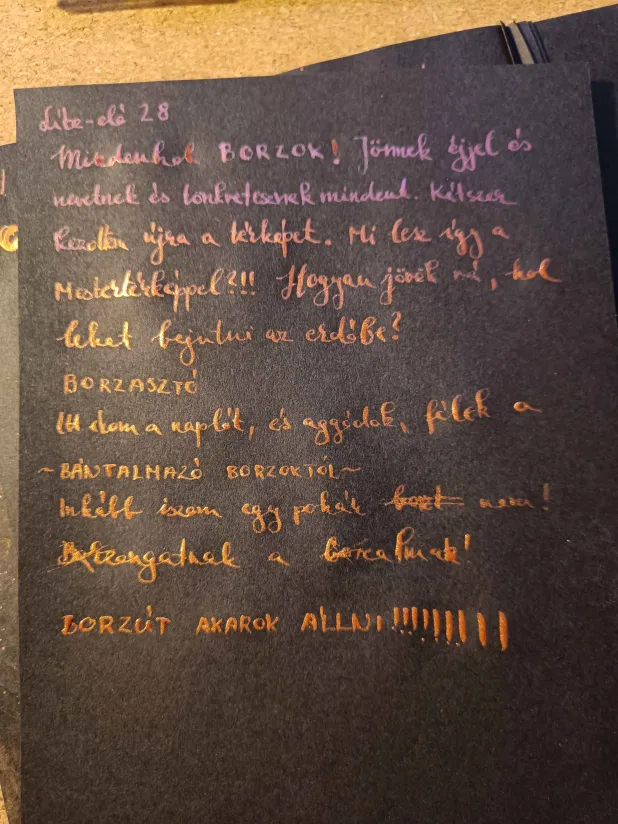 Libe-elő 28
Mindenhol BORZOK! Jönnek éjjel és
nevetnek és tönkretesznek mindent. Kétszer
kezdtem újra a térképet. Mi lesz így a
Mestertérképpel?!!! Hogyan jövök rá, hol
lehet bejutni az erdőbe?
BORZASZTÓ
Itt írom a naplót, és aggódok, félek a
~BÁNTALMAZÓ BORZOKTÓL~
Inkább iszom egy pohár bort nem!
Borzongatnak a
BORZÚT AKAROK ÁLLNI!!!!!!!!!